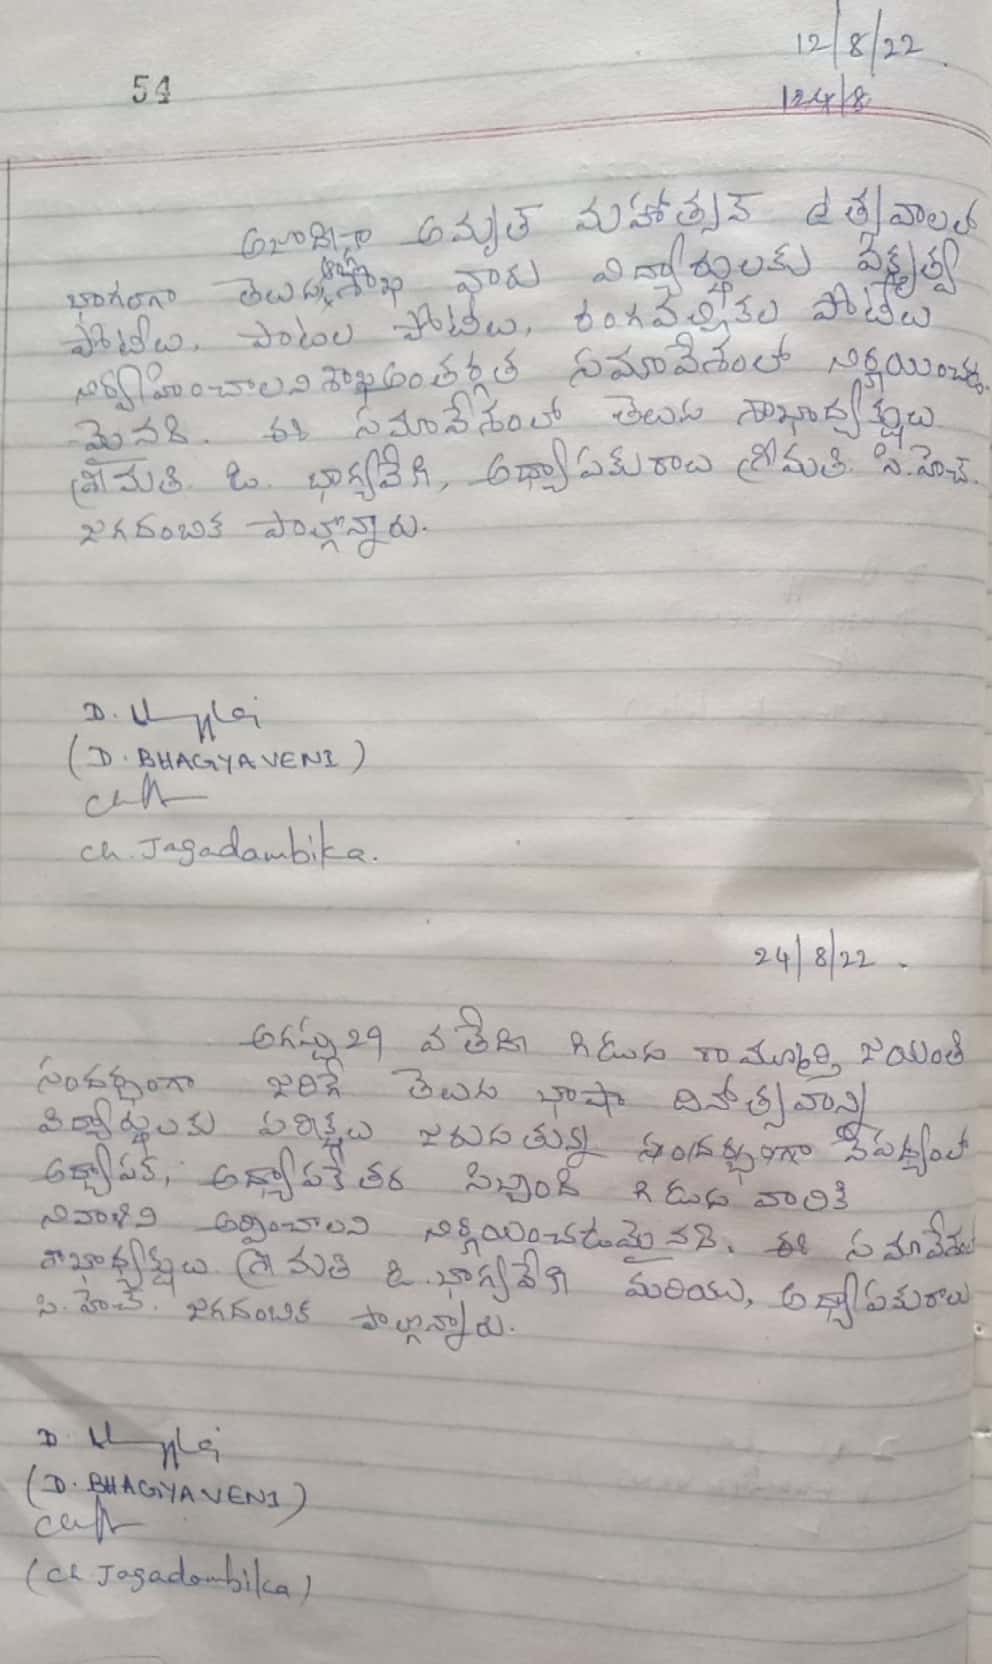 12/8/22
54
124/8
ఆజాదీకా అమృత్ మహోత్సవ్ ఉత్సవాలలో
భాగంగా తెలుగు శాఖ వారు విద్యార్థులకు వక్తృత్వ
పోటీలు, పాటల పోటీలు, రంగవల్లికల పోటీలు
నిర్వహించాలని శాఖ అంతర్గత సమావేశంలో నిర్ణయించడ
మైనది. ఈ సమావేశంలో తెలుగు శాఖాధ్యక్షులు
శ్రీమతి డి. భాగ్యవేణి, అధ్యాపకురాలు శ్రీమతి. సి.హెచ్.
జగదంబిక పాల్గొన్నారు.
D.
(D. BHAGYAVENI)
Ch. Jagadambika.
24/8/22.
ఆగస్టు 29 వ తేదీ గిడుగు రామ్మూర్తి జయంతి
సందర్భంగా జరిగే తెలుగు భాషా దినోత్సవాన్ని
విద్యార్థులకు పరీక్షలు జరుగుతున్న సందర్భంగా నేపథ్యంలో
అధ్యాపక, అధ్యాపకేతర సిబ్బంది గిడుగు వారికి
నివాళిని అర్పించాలని నిర్ణయించడమైనది. ఈ సమావేశంలో
శాఖాధ్యక్షులు శ్రీమతి డి. భాగ్యవేణి మరియు, అధ్యాపకురాలు
సి.హెచ్. జగదంబిక పాల్గొన్నారు.
D.
(D. BHAGYAVENI)
(Ch Jagadambika)